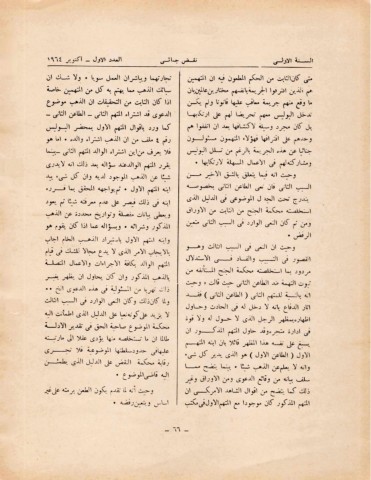 السنة الاولى
نقض جنائي
العدد الاول - اكتوبر ١٩٦٤
متى كان الثابت من الحكم المطعون فيه ان المتهمين
هم الذين اقترفوا الجريمة بأنفسهم مختارين عالمين بان
ما وقع منهم جريمة معاقب عليها قانونا ولم يكن
تدخل البوليس معهم لغرض تحريضهم على ارتكابها
بل كان مجرد وسيلة لاكتشافها بعد ان اتفقوا هم
وحدهم على اقترافها فهؤلاء المتهمون مسئولون
جنائيا عن هذه الجريمة بالرغم من تسلل البوليس
ومشاركته لهم في الاعمال المسهلة لارتكابها .
وحيث انه فيما يتعلق بالشق الاخير من
السبب الثاني فان نعى الطاعن الثاني بخصوصه
يندرج تحت الجدل الموضوعى فى الدليل الذى
استخلصته محكمة الجنح من الثابت من الاوراق
ومن ثم كان النعى الوارد فى السبب الثانى متعين
الرفض .
وحيث ان النعى فى السبب الثالث وهو
القصور فى التسبيب والفساد فى الاستدلال
مردود بما استخلصته محكمة الجنح المستأنفه من
ثبوت التهمة ضد الطاعن الثاني حيث قالت « وحيث
انه بالنسبة للمتهم الثانى ( الطاعن الثانى ) فقد
اثار الدفاع بانه لا دخل له فى الحادث وحاول
اظهاره بمظهر الرجل الذى لا حول له ولا قوة
فى ادارة متجره وقد حاول المتهم المذكور ان
يسبغ على نفسه هذا المظهر قائلا بان ابنه المتهم
الاول ( الطاعن الاول ) هو الذى يدير كل شىء
وانه لا يعلم عن الذهب شيئا . بينما يتضح مما
سلف بيانه من وقائع الدعوى ومن الاوراق وغير
ذلك كما يتضح من اقوال الشاهد الامريكى ان
المتهم المذكور كان موجودا مع المتهم الاول فى مكتب
تجارتهما ويباشران العمل سويا . ولا شك ان
مسائل الذهب مما يهتم به كل من المتهمين خاصة
اذا كان الثابت من التحقيقات ان الذهب موضوع
الدعوى قد اشتراه المتهم الثاني - الطاعن الثانى -
كما ورد باقوال المتهم الاول بمحضر البوليس
رقم ٤ ملف من ان الذهب اشتراه والده . اما هو
فلا يعرف من اين اشتراه الوالد المتهم الثانى بينما
يقرر المتهم الوالد عند سؤاله بعد ذلك انه لا يدرى
شيئا عن الذهب الموجود لديه وان كل شىء بيد
ابنه المتهم الاول . ثم يواجهه المحقق بما قرره
ابنه فى ذلك فيصر على عدم معرفته شيئا ثم يعود
ويعطى بيانات مفصلة وتواريخ محددة عن الذهب
المذكور وشرائه . وبسؤاله عما اذا كان يقوم هو
وابنه المتهم الاول باستيراد الذهب الخام اجاب
بالايجاب الامر الذى لا يدع مجالا للشك فى قيام
المتهم الوالد بكافة الاجراءات والاعمال المتصلة
بالذهب المذكور وان كان يحاول ان يظهر بغير
ذلك تهربا من المسئولية فى هذه الدعوى الخ . »
ولما كان ذلك وكان النعى الوارد فى السبب الثالث
لا يزيد على كونه نعيا على الدليل الذى اطمأنت اليه
محكمة الموضوع صاحبة الحق فى تقدير الادلة
طالما ان ما تستخلصه منها يؤدى عقلا الى ما رتبته
عليها فى حدود سلطتها الموضوعية فلا تجرى
رقابة محكمة النقض على الدليل الذى يطمئن
اليه قاضى الموضوع .
وحيث انه لما تقدم يكون الطعن برمته على غير
اساس ويتعين رفضه .
- ٦٦ -